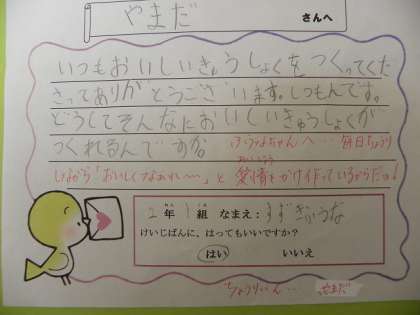 やまださんへ
いつもおいしいきゅうしょくをつくってくだ
さってありがとうございます。しつもんです。
どうしてそんなにおいしいきゅうしょくが
つくれるんですか。
ふうなちゃんへ…毎日ちょうり
しながら「おいしくなあれ〜」と愛情をかけ作っているからだよ!
あいじょう
2年1組 なまえ:すずきふうな
ねん くみ
けいじばんに、はってもいいですか?
はい いいえ
ちょうりいん… やまだ